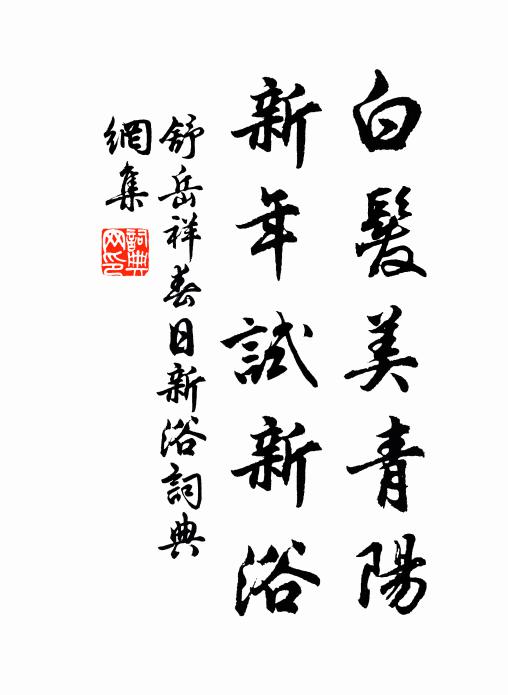 白髮美青陽
新年試新浴
舒岳祥春日新浴詞典
網集
詞典網印